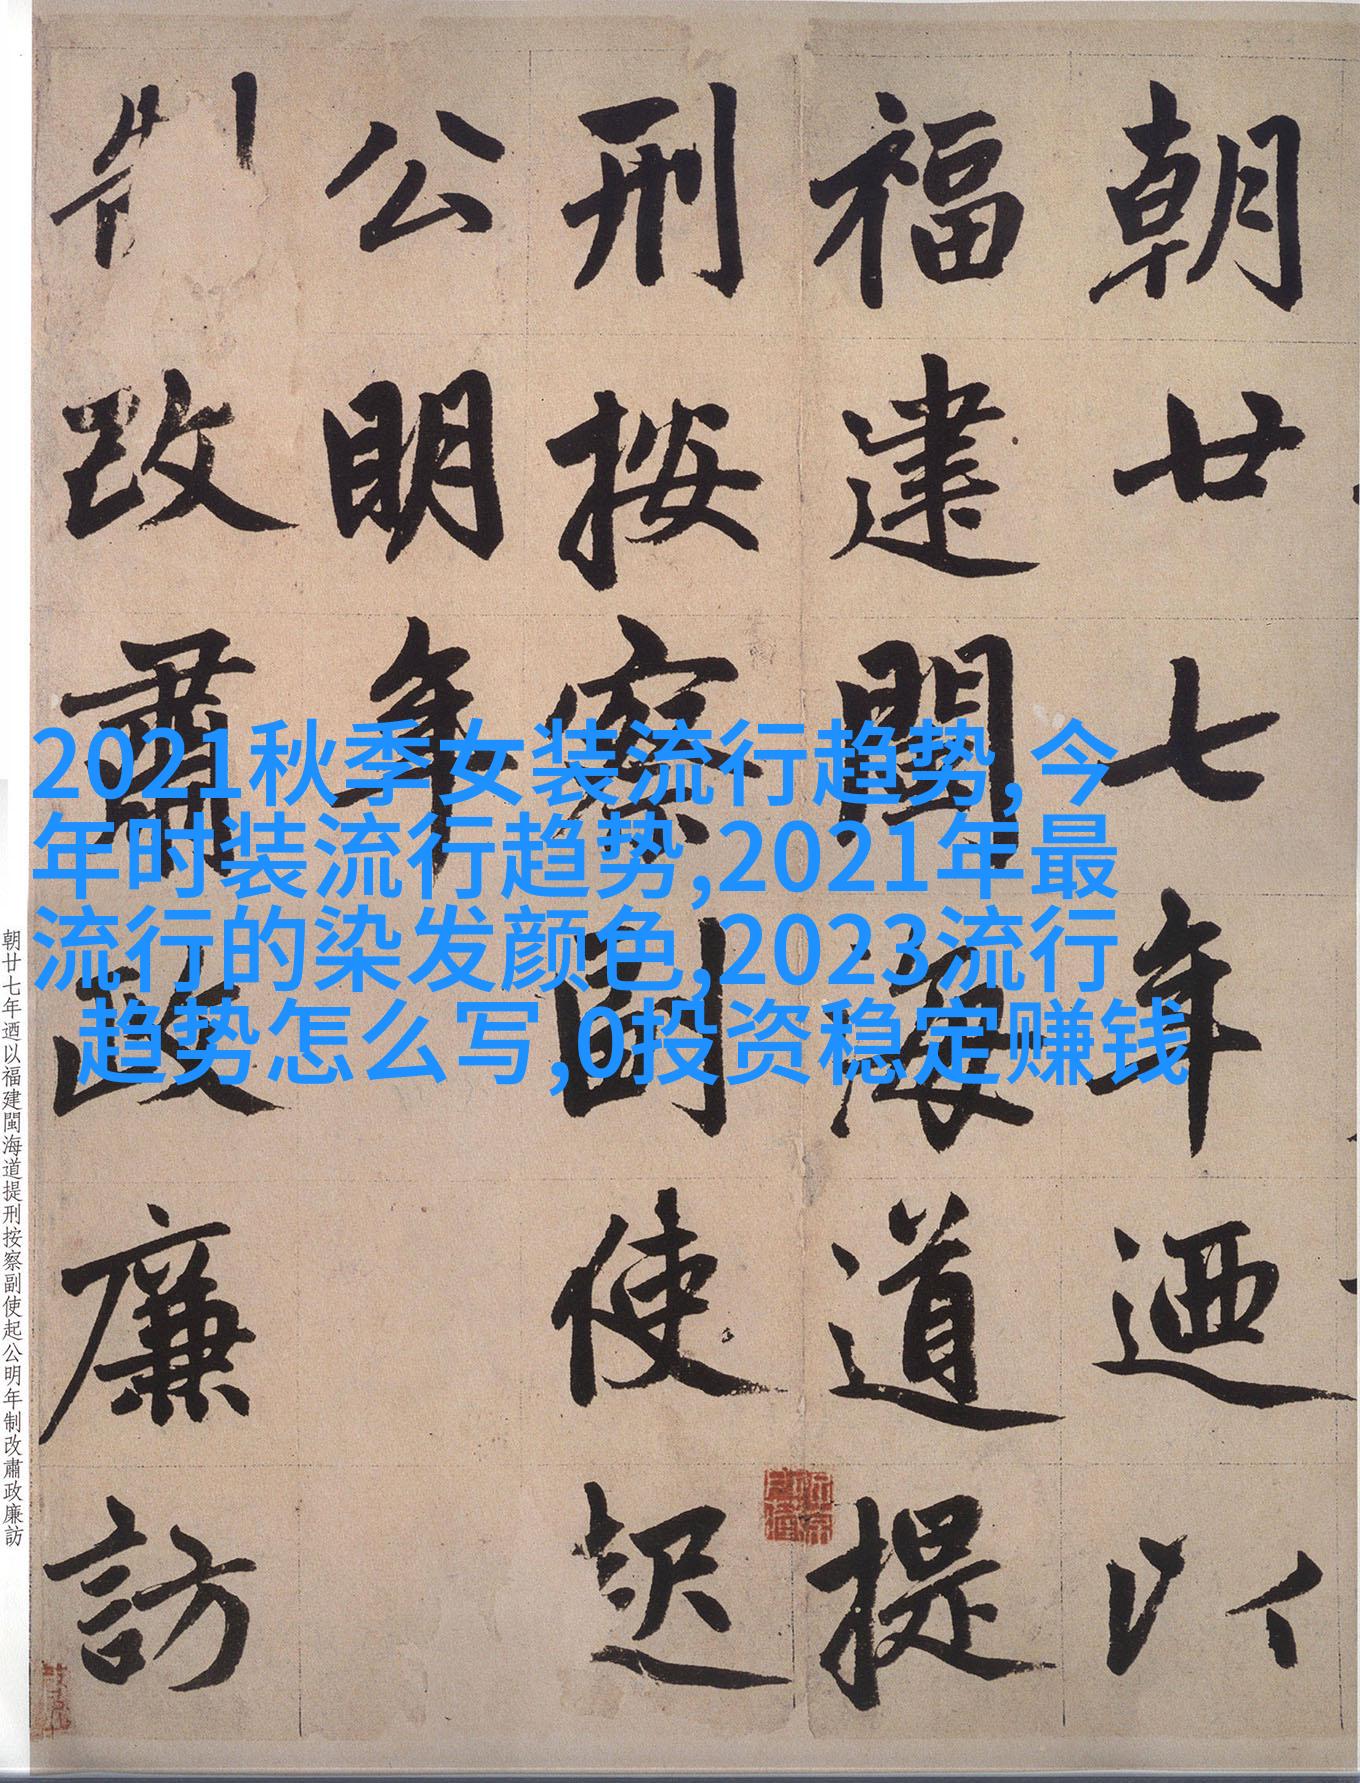 朝廿七年迺以
福建閩海道提
刑按察副使起
公明年
制改肅政廉訪
2021秋季女装流行趋势,今
年时装流行趋势,2021年最
流行的染发颜色,2023流行
趋势怎么写,0投资稳定赚钱
朝廿七年迺以福建閩海道提刑按察副使起公明年制改肅政廉訪